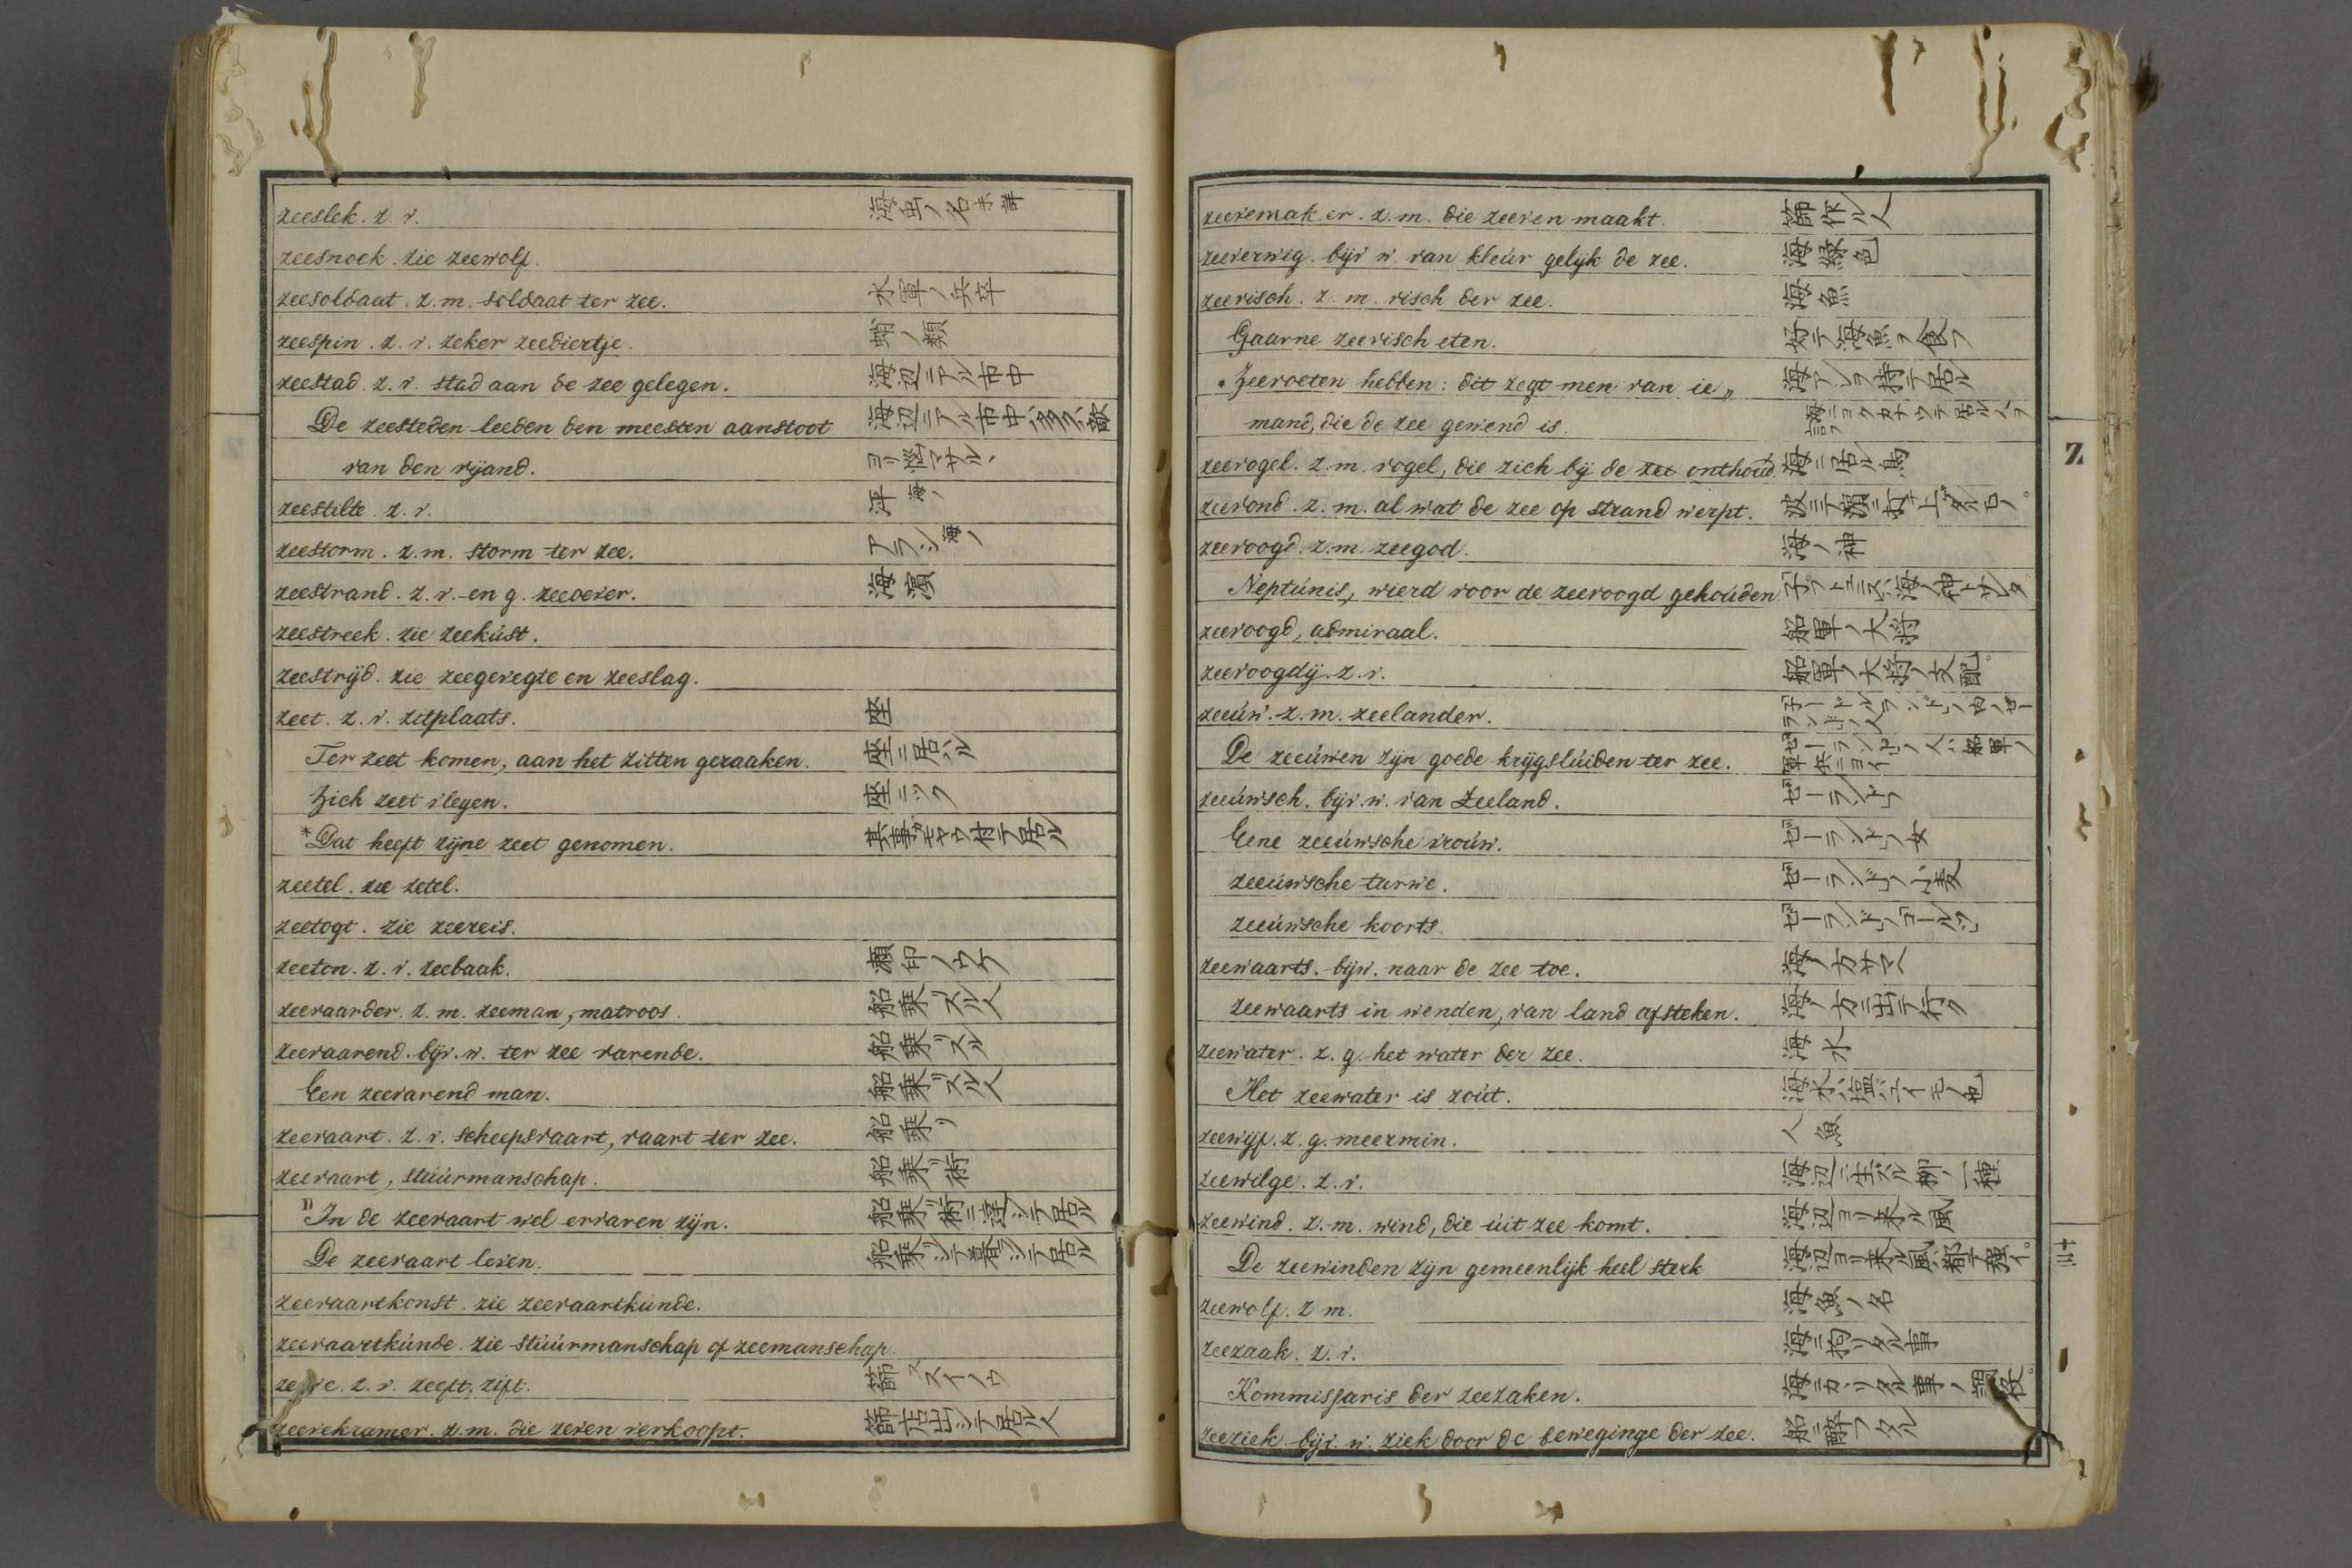 zeeslek. z. v. 海虫ノ名未詳
zeesnoek. zie zeewolf.
zeesoldaat. z. m. soldaat ter zee. 水軍ノ兵卒
zeespin. z. v. zeker zeediertje. 蛸ノ類
zeestad. z. v. stad aan de zee gelegen. 海辺ニアル市中
De zeesteden leeden den meesten aanstoot 海辺ニアル市中ハ多ク敵
van den vijand. ヨリ悩マサル、
zeestilte. z. v. 平 海ノ
zeestorm. z. m. storm ter zee. アラシ 海ノ
zeestrand. z. v. en g. zeeoever. 海濱
zeestreek. zie zeekúst.
zeestrijd. zie zeegevegte en zeeslag.
zeet. z. v. zitplaats. 座
Ter zeet komen, aan het zitten geraaken. 座ニ居ハル
Zich zeet vleyen. 座ニツク
*Dat heeft zijne zeet genomen. 其事ガモハヤ
zeetel. zie zetel.
zeetogt. zie zeereis.
zeeton. z. v. zeebaak. 瀬印ノウケ
zeevaarder. z. m. zeeman, matroos. 船乗リスル人
zeevaarend. bijv. w. ter zee varende. 船乗リスル
Een zeevarend man. 船乗リスル人
zeevaart. z. v. scheepsvaart, vaart ter zee. 船乗リ
zeevaart, stúúrmanschap. 船乗リ術
In de zeevaart wel ervaren zijn. 船乗リ術ニ達シテ居ル
De zeevaart leven. 船乗リシテ暮ラシテ居ル
zeevaartkonst. zie zeevaartkúnde.
zeevaartkúnde. zie stúúrmanschap of zeemanschap.
zeeve. z. v. zeeft, zift. 篩 スイノウ
zeevekramer. z. m. die zeven verkoopt. 篩店出シテ居ル人
zeevemaker. z. m. die zeeven maakt. 篩作ル人
zeeverwig. bijv w. van kleúr gelyk de zee. 海緑色
zeevisch. z. m. visch der zee. 海魚
Gaarne zeevisch eten. 好テ海魚ヲ食フ
*Zeevoeten hebben: dit zegt men van ie„ 海アシヲ持テ居ル
mand, die de zee gewend is.
zeevogel. z. m. vogel, die zich bij de zee onthoud. 海ニ居ル鳥
zeevond. z. m. al wat de zee op strand werpt.
zeevoogd. z. m. zeegod. 海ノ神
Neptúnis, wierd voor de zeevoogd gehoúden.
zeevoogd, admiraal. 船軍ノ大将
zeevoogdij. z. v. 船軍ノ大将ノ支配。
zeeúw. z. m. zeelander. 子ードルランドノ内ノゼー
ランドノ人
De zeeúwen zijn goede krijgslúiden ter zee. ゼーランドノ人ハ船軍ノ
軍兵ニヨイ
zeeúwsch. bijv. w. van Zeeland. ゼーランドノ
Eene zeeúwsche vroúw. ゼーランドノ女
zeeúwsche turwe. ゼーランドノ小麦
zeeúwsche koorts. ゼーランドノコールツ
zeewaarts. bijw. naar de zee toe. 海ノ方サマヘ
zeewaarts in wenden, van land afsteken. 海ノ方ニ出テ行ク
zeewater. z. g. het water der zee. 海水
Het zeewater is zoút. 海水ハ塩ハユイモノ也
zeewijf. z. g. meermin. 人魚
zeewilge. z. v. 海辺ニ生ズル柳ノ一種
zeewind. z. m. wind, die úit zee komt. 海辺ヨリ来ル風
De zeewinden zijn gemeenlijk heel sterk 海辺ヨリ来ル風ハ都テ強イ。
zeewolf. z m. 海魚ノ名
zeezaak. z. v. 海ニ拘リタル事
Kommissaris der zeezaken.
zeeziek. bijv. w. ziek door de beweginge der zee. 船ニ酔フタル
Z